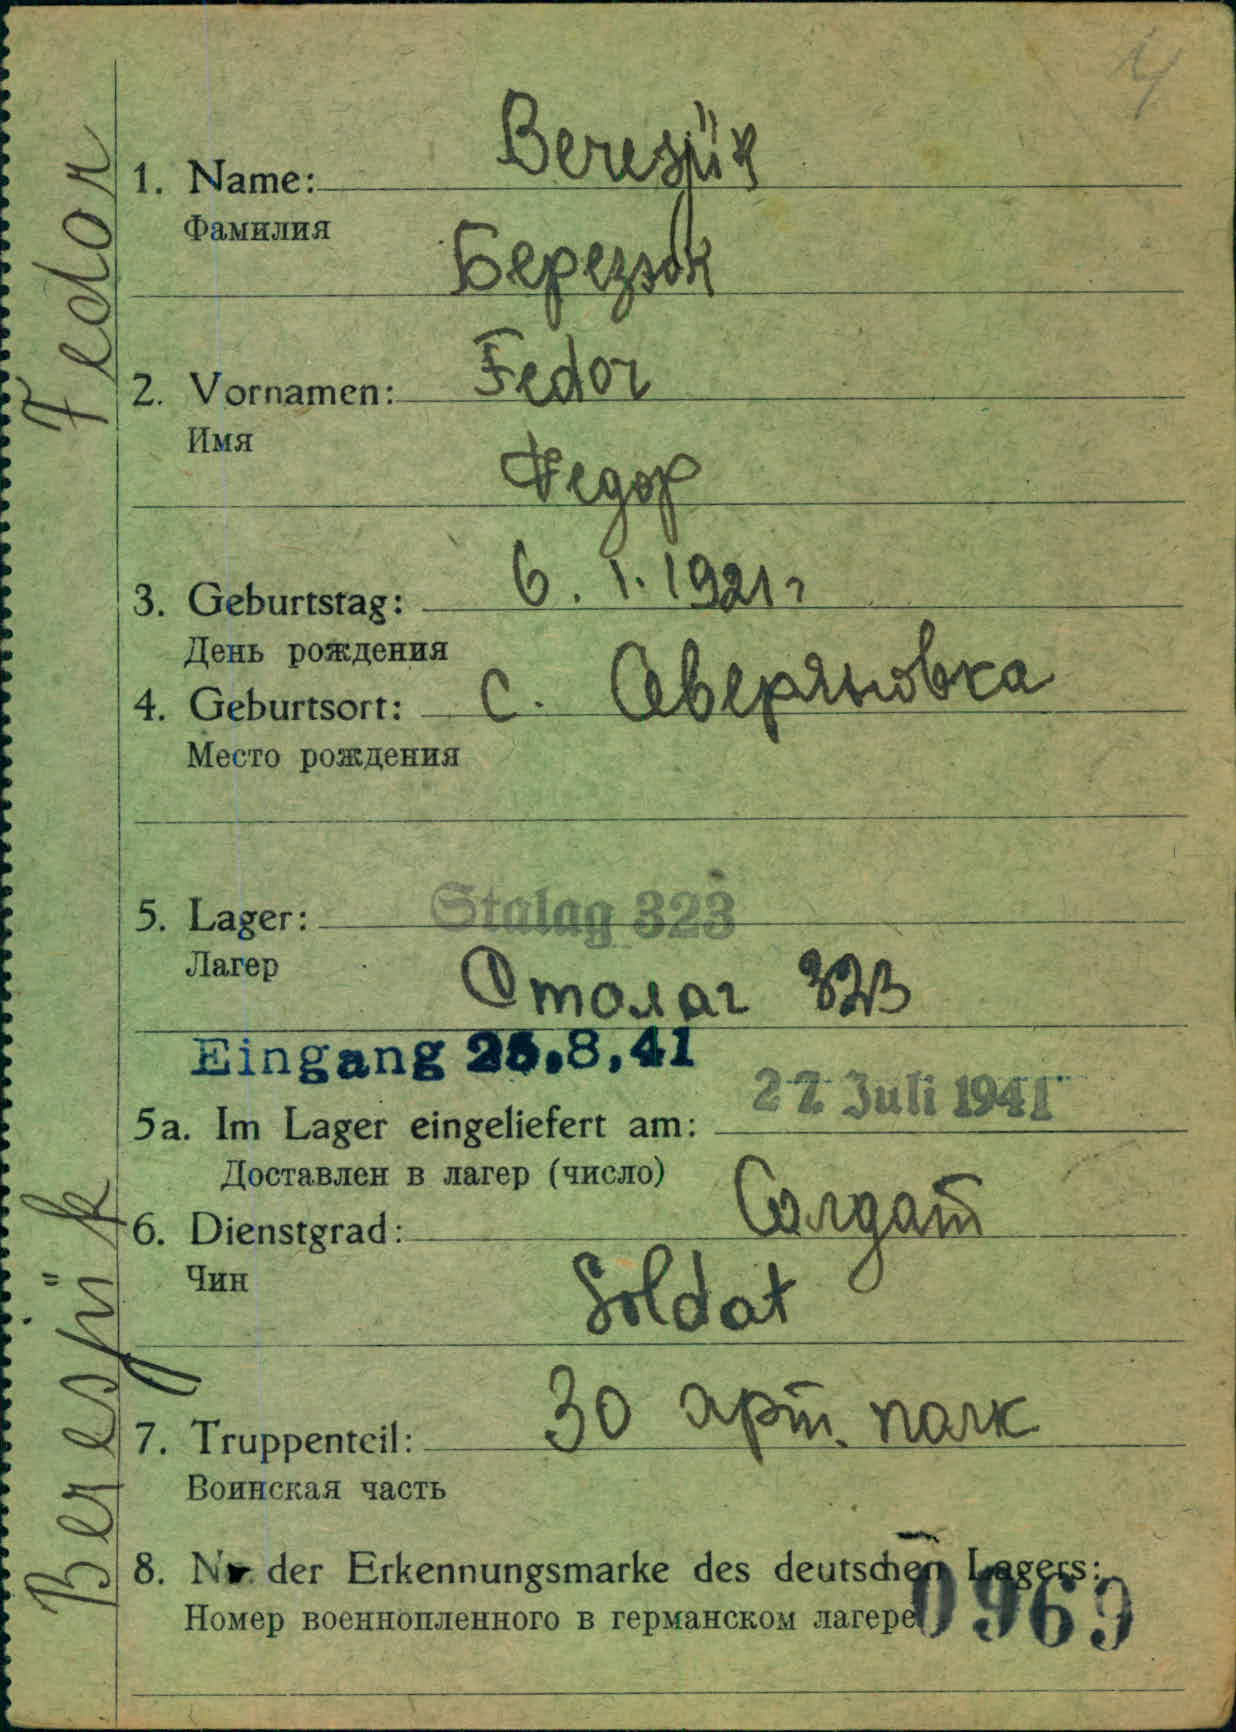 Beresjük Fedor
1. Name: Beresjük
Фамилия
Березюк
2. Vornamen: Fedor
Имя
Федор
3. Geburtstag: 6. 1. 1921 г
День рождения
4. Geburtsort: с. Аверяновка
Место рождения
5. Lager: Stalag 323
Лагер
Столаг 323
Eingang 25.8.41
5a. Im Lager eingeliefert am: 22 Juli 1941
Доставлен в лагер (число)
6. Dienstgrad: Солдат
Чин
Soldat
7. Truppenteil: 30 арт. полк
Воинская часть
8. Nr. der Erkennungsmarke des deutschen Lagers:
Номер военнопленного в германском лагере 0969